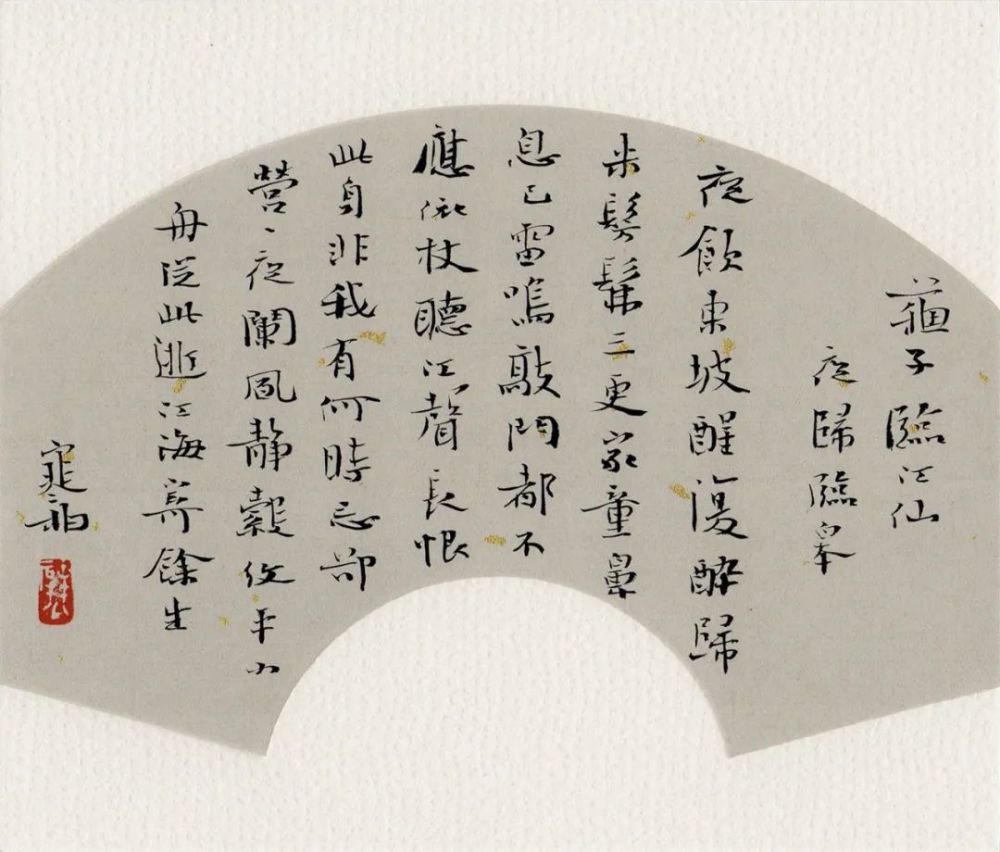 蘇子臨江仙
夜歸臨皋
夜飲東坡醒復醉歸
來髣髴三更家童鼻
息已雷鳴敲門都不
應倚杖聽江聲長恨
此身非我有何時忘卻
營〻夜闌風靜縠紋平小
舟從此逝江海寄餘生